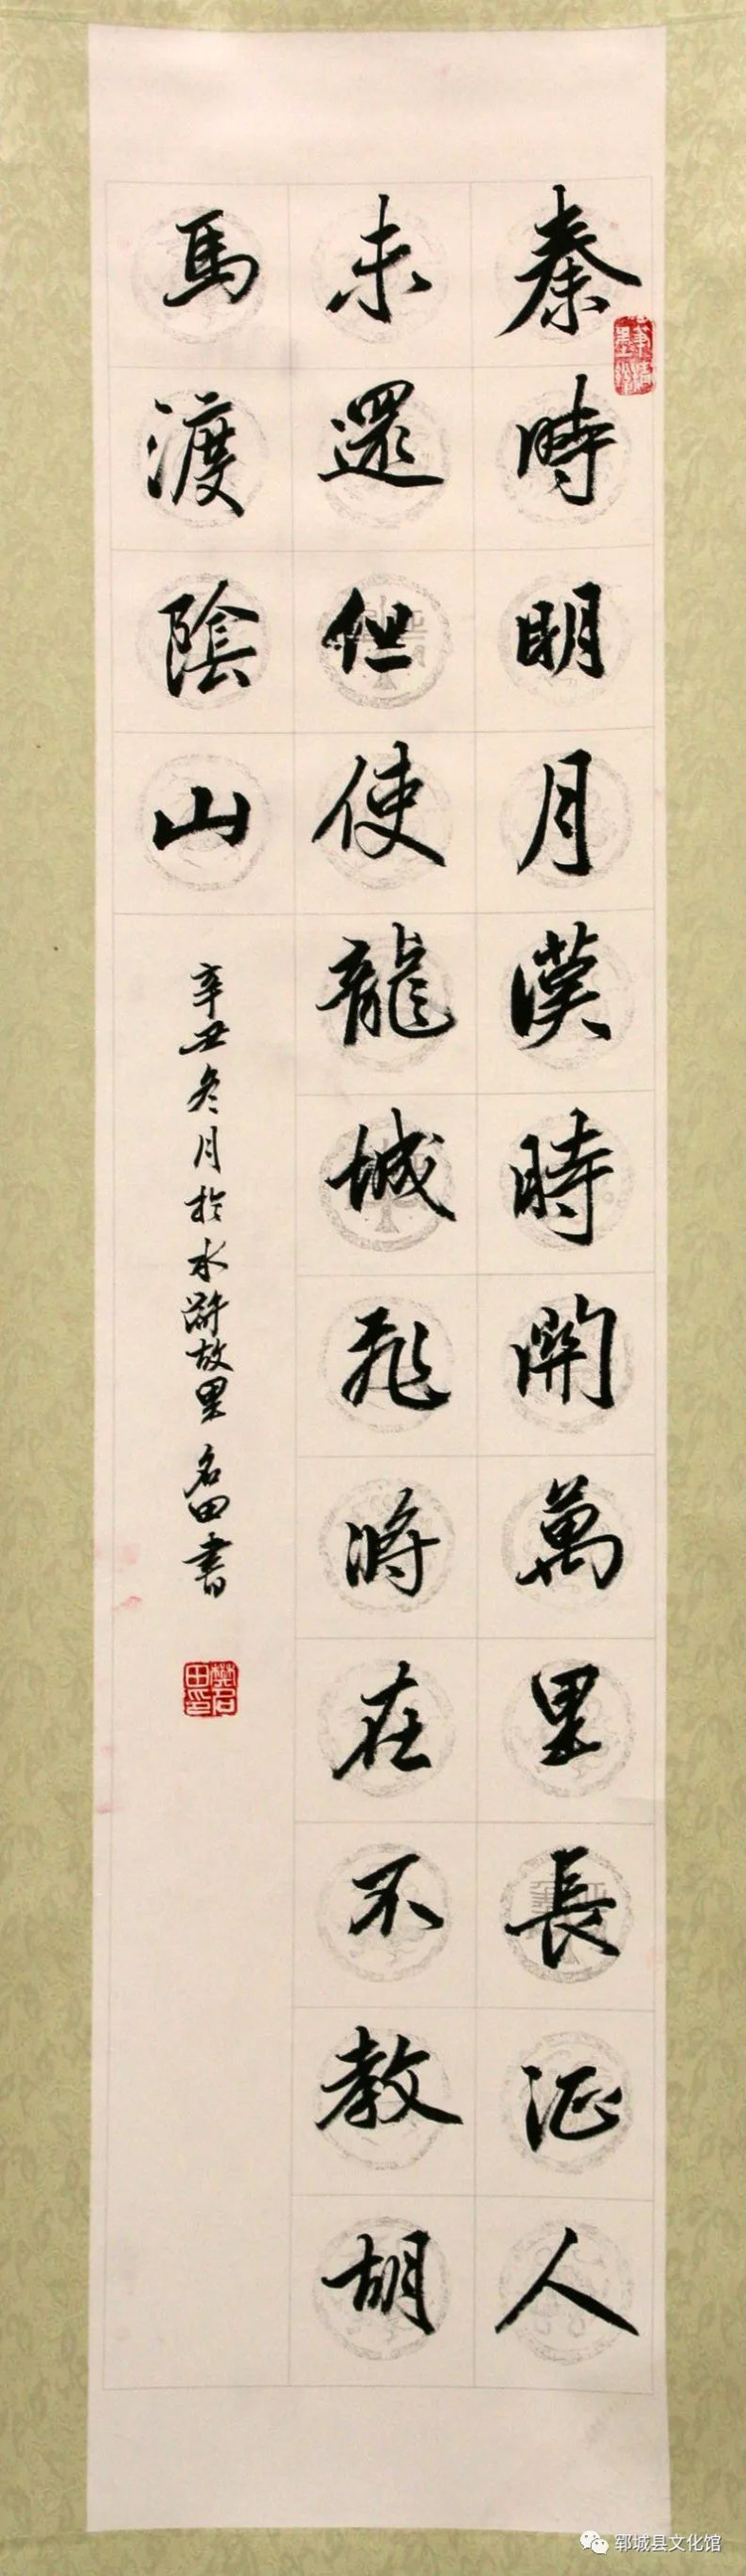 秦時明月漢時關萬里長征人
未還但使龍城飛將在不教胡
馬渡陰山
辛丑冬月於水滸故里名田書
樊名田印
郓城县文化馆